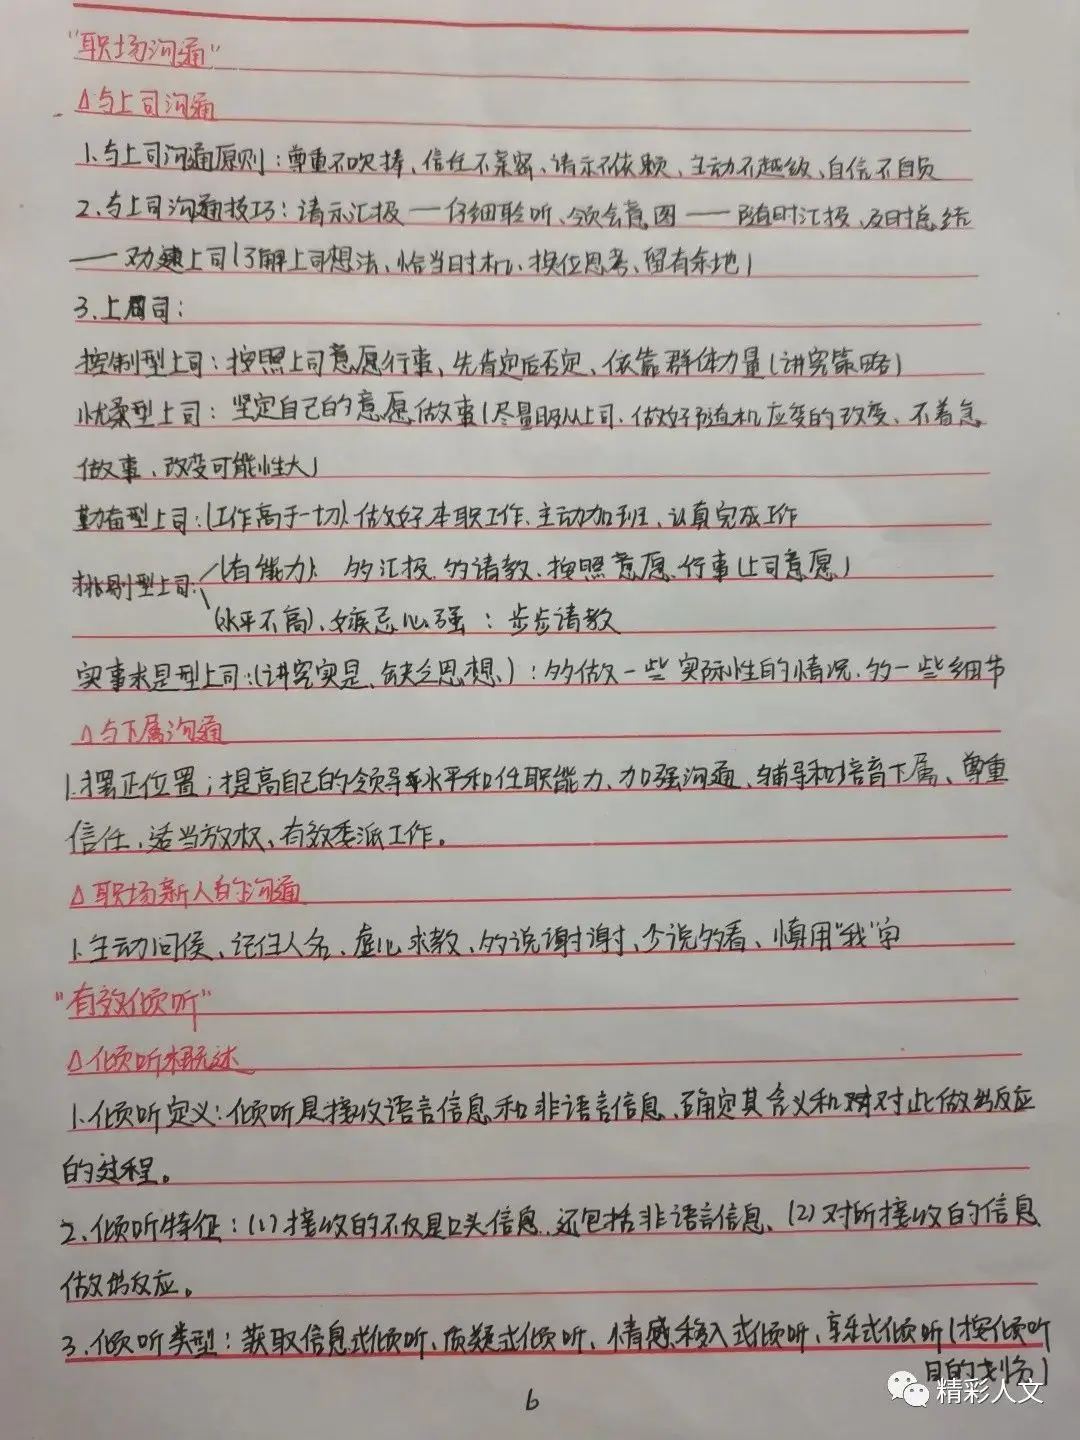 "职场沟通"
Δ与上司沟通
1、与上司沟通原则：尊重不吹捧、信任不亲密、请示不依赖、主动不越级、自信不自负
2、与上司沟通技巧：请示汇报——仔细聆听、领会意图——随时汇报、及时总结
——劝建上司(了解上司想法、恰当时机、换位思考、留有余地)
3、上司：
控制型上司：按照上司意愿行事，先肯定后否定、依靠群体力量(讲究策略)
优柔型上司：坚定自己的意愿做事(尽量服从上司、做好随机应变的改变、不着急
做事、改变可能性大)
勤奋型上司：(工作高于一切)、做好本职工作、主动加班、认真完成工作
挑剔型上司：(有能力)、多汇报、多请教、按照意愿行事(上司意愿)
(水平不高)、嫉妒心强：步步请教
实事求是型上司：(讲究实是、缺乏思想)：多做一些实际性的情况、多一些细节
Δ与下属沟通
1、摆正位置；提高自己的领导水平和任职能力、加强沟通、辅导和培育下属、尊重
信任、适当放权、有效委派工作。
Δ职场新人的沟通
1、主动问候、记住人名、虚心求教、多说谢谢、少说多看、慎用"我"字
"有效倾听"
Δ倾听概述
1、倾听定义：倾听是接收语言信息和非语言信息、确定其含义和对此做出反应
的过程。
2、倾听特征：(1)接收的不仅是口头信息、还包括非语言信息、(2)对所接收的信息
做出反应。
3、倾听类型：获取信息式倾听、质疑式倾听、情感移入式倾听、享乐式倾听(按倾听
目的划分)
6
精彩人文